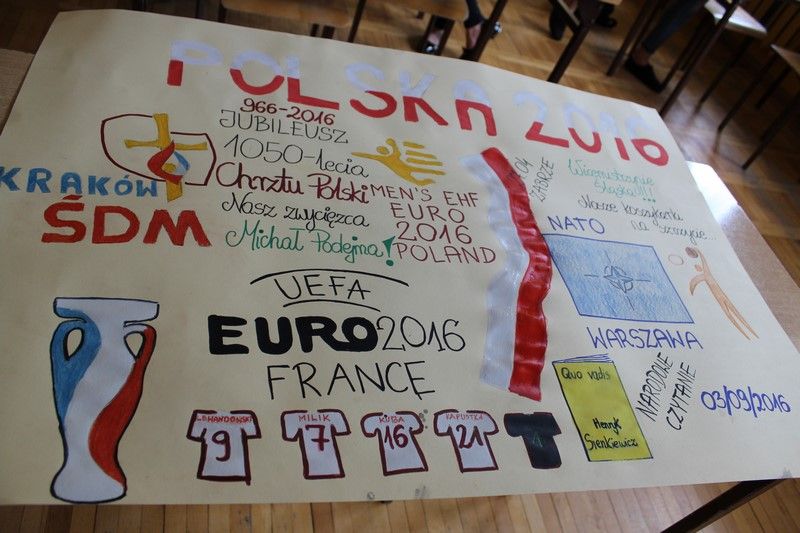 POLSKA 2016
966-2016
JUBILEUSZ
1050-lecia
Chrztu Polski
Nasz zwycięzca
Michał Podejma!
KRAKÓW
ŚDM
MEN'S EHF
EURO
2016
POLAND
ZABRZE
Nasze koszykarki
na szczycie...
NATO
WARSZAWA
UEFA
EURO2016
FRANCE
9
MILIK
7
KUBA
16
KAPUSTKA
21
Quo vadis
Henryk
Sienkiewicz
NARODOWE
CZYTANIE
03/09/2016